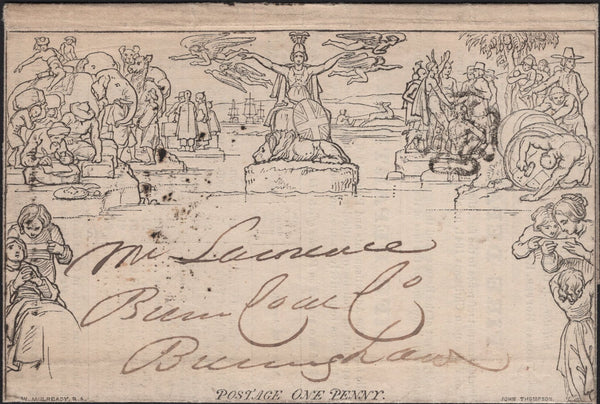 Mr Lawrence
Birm Coal Co
Birmingham
W. MULREADY, R.A.
POSTAGE ONE PENNY.
JOHN THOMPSON